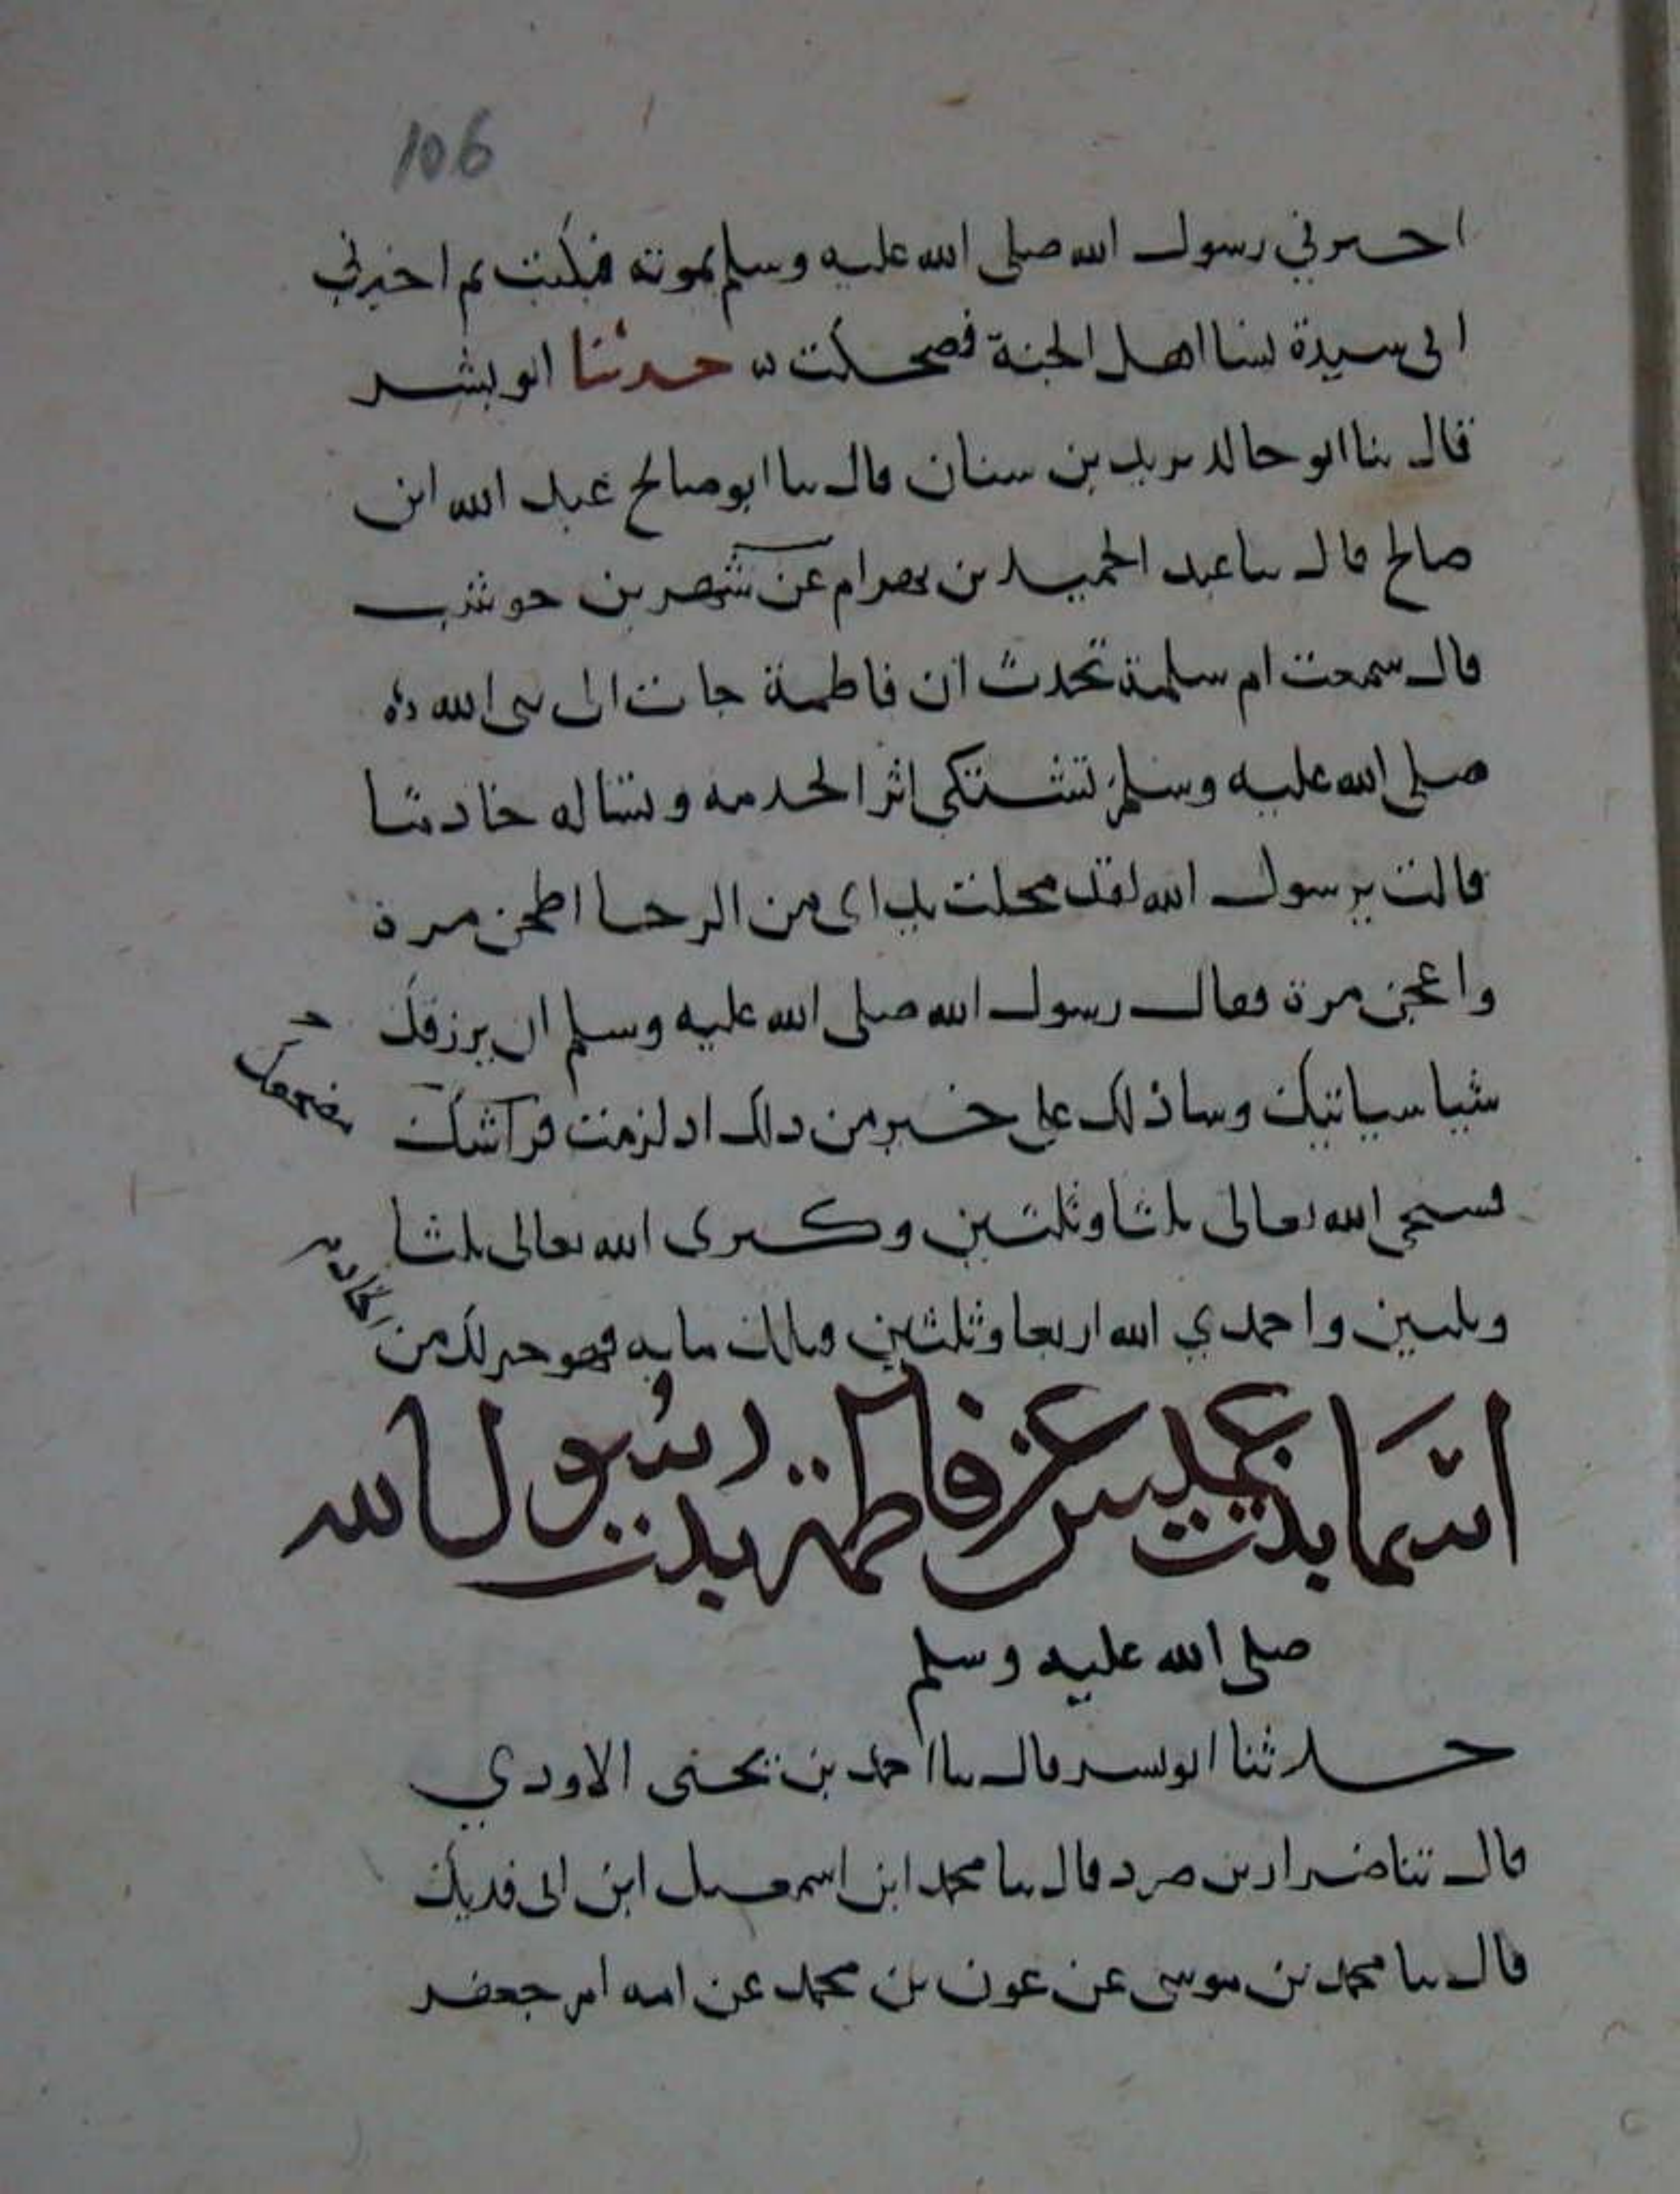 106
اخبرني رسول الله صلى الله عليه وسلم بموته فبكيت ثم اخبرني
انى سيدة نسا اهل الجنة فضحكت حدثنا ابو بشر
قال ثنا ابو خالد يزيد بن سنان قال ثنا ابو صالح عبد الله ابن
صالح قال ثنا عبد الحميد بن بهرام عن شهر بن حوشب
قال سمعت ام سلمة تحدث ان فاطمة جات الى نبى الله
صلى الله عليه وسلم تشتكى اثر الخدمه وتساله خادما
قالت يرسول الله لقد مجلت يداى من الرحا اطحن مرة
واعجن مرة فقال رسول الله صلى الله عليه وسلم ان يرزقك
شيا سياتيك وسادلك على خير من ذلك اذ لزمت فراشك
مضجعك
فسبحى الله تعالى ثلثا وثلثين وكبرى الله تعالى ثلثا
وثلثين واحمدي الله اربعا وثلثين فذلك مايه فهو خير لك من
الخادم
اسما بنت عميس عن فاطمة بنت رسول الله
صلى الله عليه وسلم
حدثنا ابو بشر قال ثنا احمد بن يحيى الاودي
قال ثنا ضرار بن صرد قال ثنا محمد ابن اسمعيل ابن ابى فديك
قال ثنا محمد بن موسى عن عون بن محمد عن امه ام جعفر